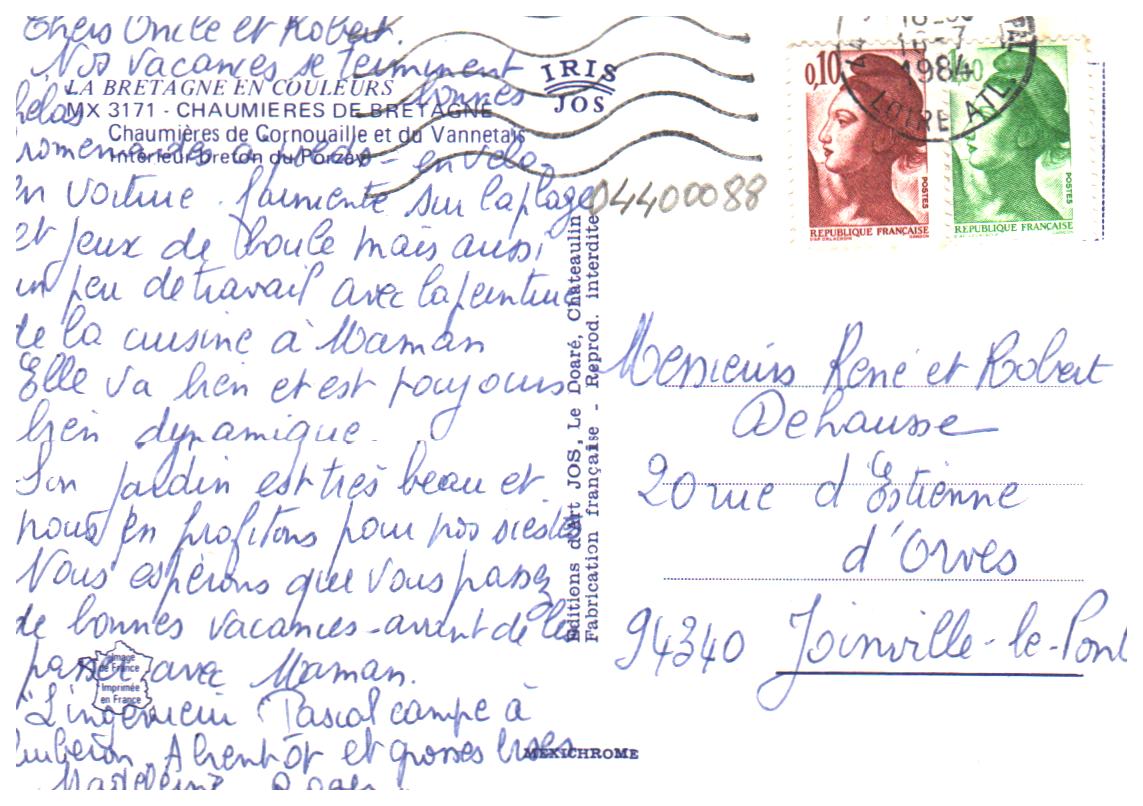 Chers Oncle et Robert.
Nos vacances se terminent
LA BRETAGNE EN COULEURS
hélas bonnes
MX 3171 - CHAUMIERES DE BRETAGNE
Chaumières de Cornouaille et du Vannetais
Intérieur breton du Porzay
romenades à pieds - en vélo -
en voiture. farniente sur la plage
et jeux de boule mais aussi
un peu de travail avec la peinture
de la cuisine à Maman
Elle va bien et est toujours
bien dynamique.
Son jardin est très beau et
nous en profitons pour nos siestes
Nous espérons que vous passez
de bonnes vacances - avant de les
passer avec Maman.
L'ingénieur Pascal campe à
A bientôt et grosses bises
Madeleine Roger
Image de France
Imprimée en France
IRIS
JOS
04400088
Editions d'Art JOS, Le Doaré, Chateaulin
Fabrication française - Reprod. interdite
MEXICHROME
0,10
REPUBLIQUE FRANÇAISE
POSTES
REPUBLIQUE FRANÇAISE
POSTES
1984
LOIRE ATL.
Messieurs René et Robert
Dehausse
20 rue d'Estienne
d'Orves
94340 Joinville-le-Pont